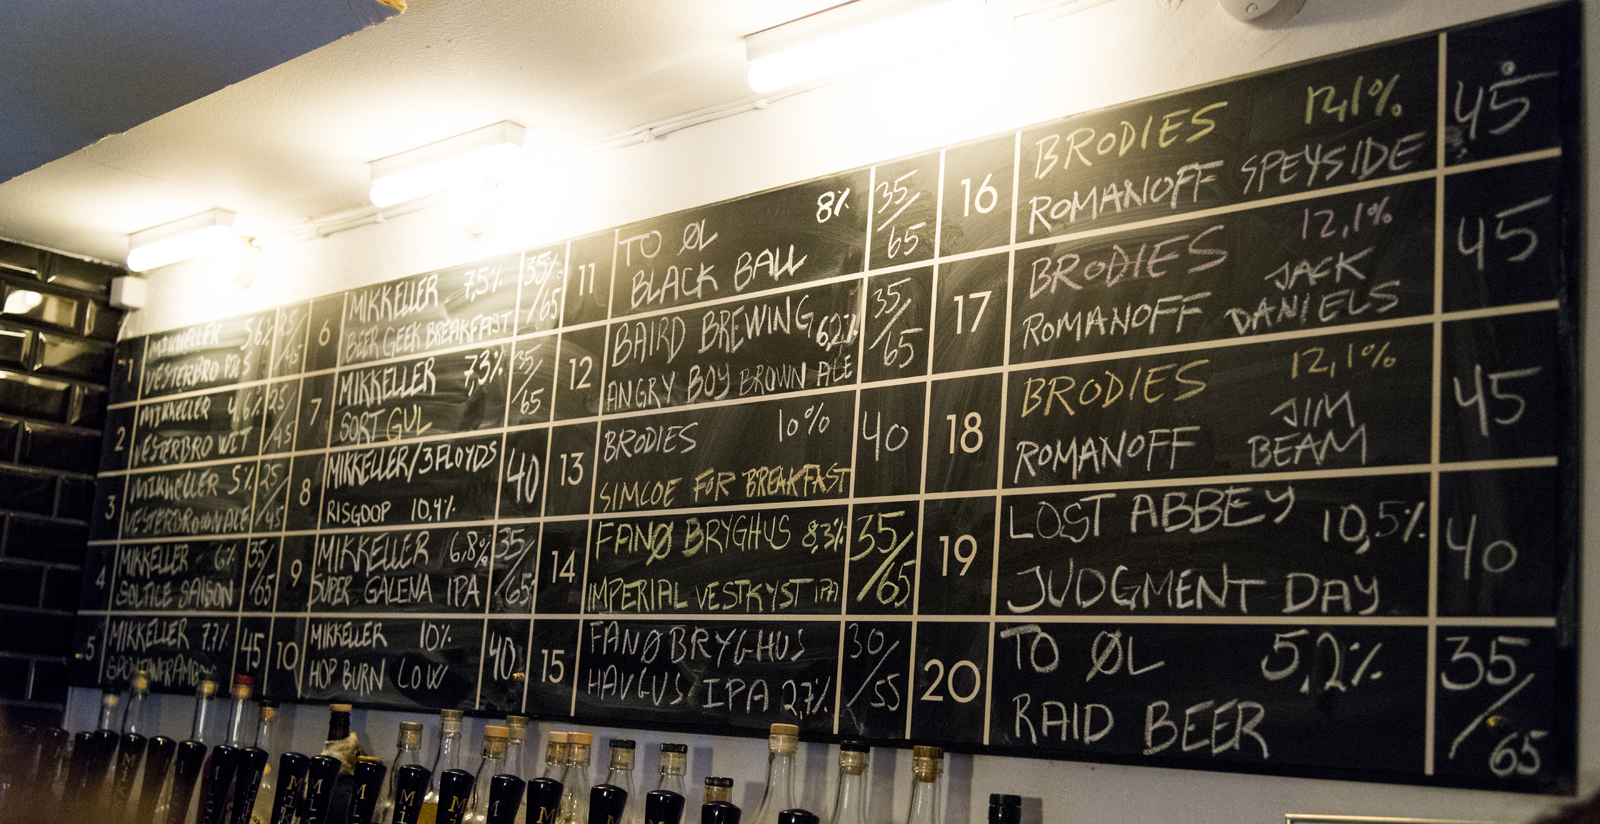 1
MIKKELLER 5,6% 25/45
VESTERBRO
2
MIKKELLER 4,6% 25/45
VESTERBRO WIT
3
MIKKELLER 5% 25/45
VESTERBROWN ALE
4
MIKKELLER 6% 35/65
SOLTICE SAISON
5
MIKKELLER 7,7% 45
6
MIKKELLER 7,5% 35/65
BEER GEEK BREAKFAST
7
MIKKELLER 7,3% 35/65
SORT GUL
8
MIKKELLER/3FLOYDS 40
RISGOOP 10,4%
9
MIKKELLER 6,8% 35/65
SUPER GALENA IPA
10
MIKKELLER 10% 40
HOP BURN LOW
11
TO ØL 8% 35/65
BLACK BALL
12
BAIRD BREWING 6,2% 35/65
ANGRY BOY BROWN ALE
13
BRODIES 10% 40
SIMCOE FOR BREAKFAST
14
FANØ BRYGHUS 8,3% 35/65
IMPERIAL VESTKYST IPA
15
FANØ BRYGHUS 30/55
HAVGUS IPA 2,7%
16
BRODIES 12,1% 45
ROMANOFF SPEYSIDE
17
BRODIES 12,1% 45
ROMANOFF JACK DANIELS
18
BRODIES 12,1% 45
ROMANOFF JIM BEAM
19
LOST ABBEY 10,5% 40
JUDGMENT DAY
20
TO ØL 5,2% 35/65
RAID BEER